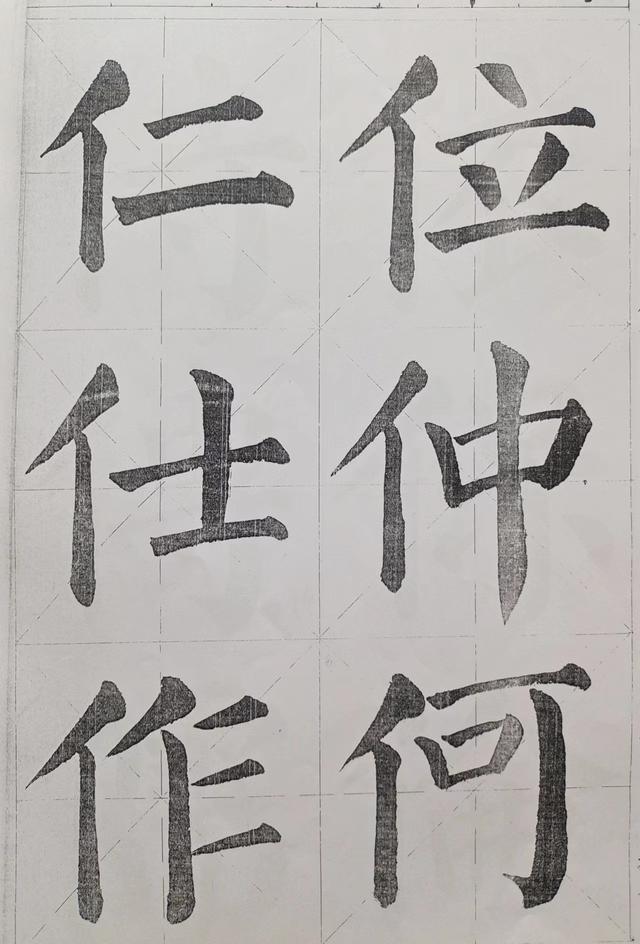 仁位
仕仲
作何